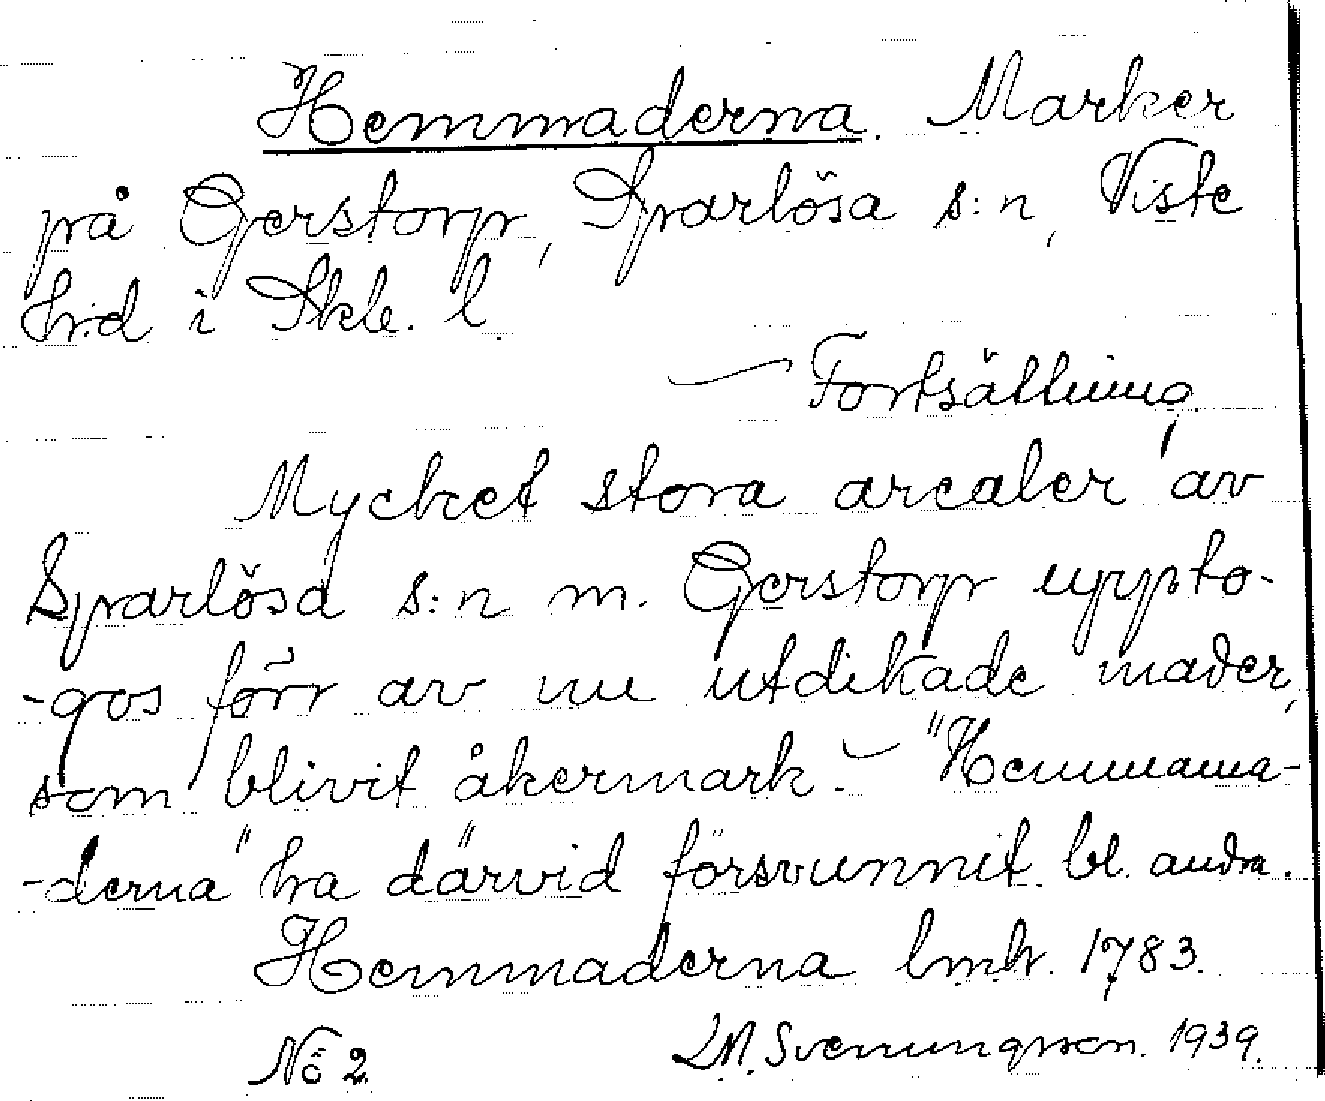 Hemmaderna. Marker
på Gerstorp, Sparlösa s:n, Viste
hrd i Skb. l.
— Fortsättning
Mycket stora arealer av
Sparlösa s:n m. Gerstorp uppto-
-gos förr av nu utdikade mader,
som blivit åkermark. — "Hemmama-
-derna" ha därvid försvunnit bl. andra.
Hemmaderna lmh. 1783.
No 2 L.M. Svenungsson. 1939.